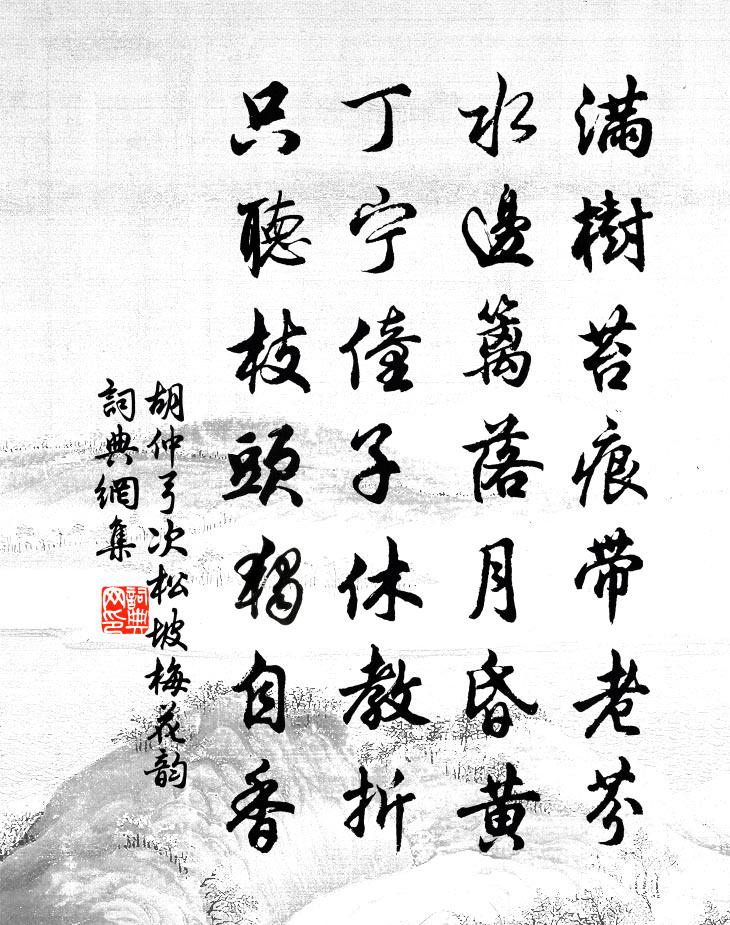 滿樹苔痕帶老芬
水邊籬落月昏黃
丁宁僮子休教折
只聽枝頭獨自香
胡仲弓次松坡梅花韵
詞典網集
詞典网印